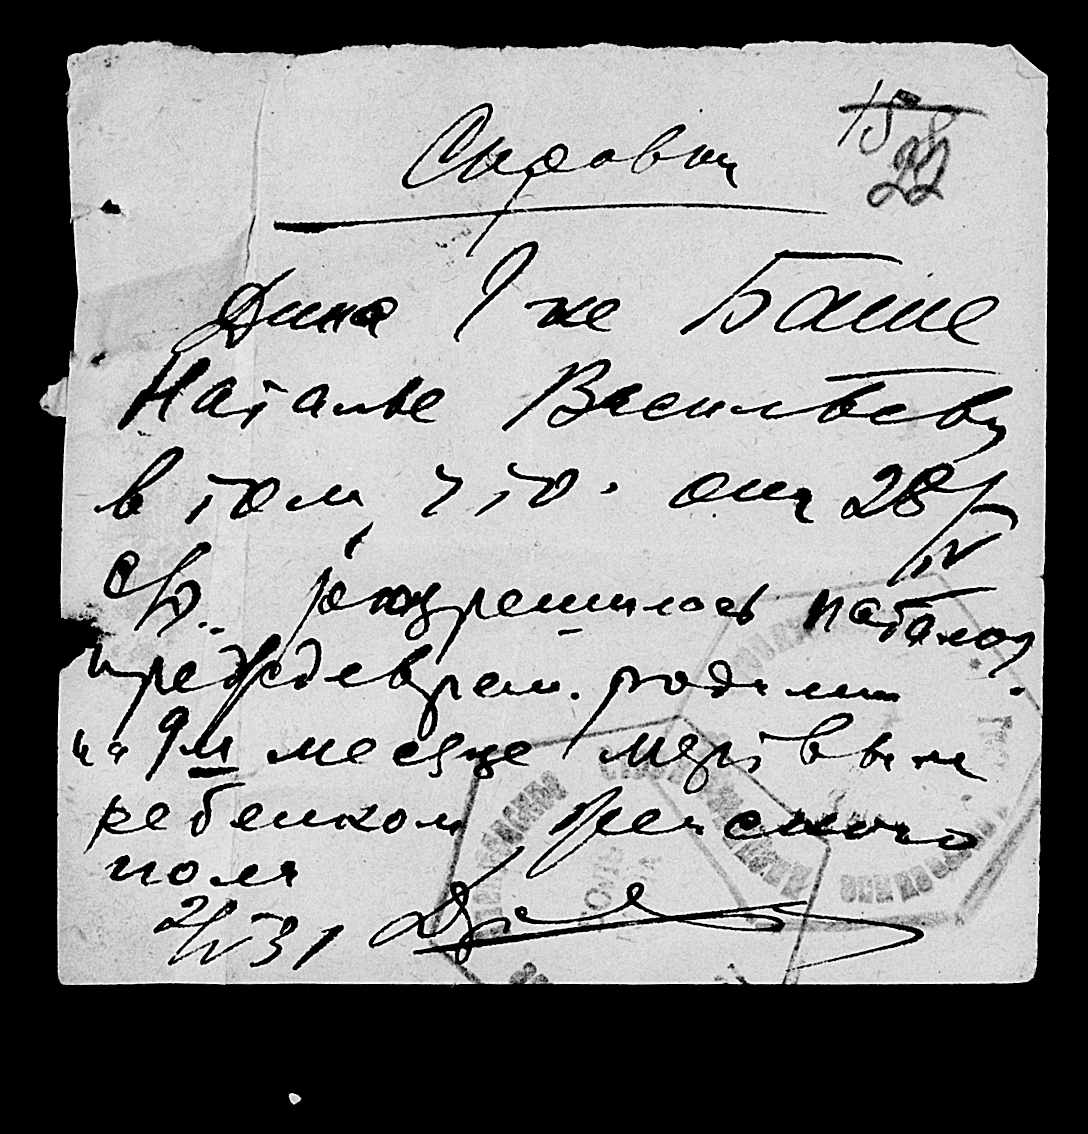 15
22
Справка
Дана гж-е Баше
Наталье Васильевне
в том, что она 28/IV
с/г. разрешилась
преждеврем. родами
на 9м месяце мертвым
ребенком женского
пола
2/V 31